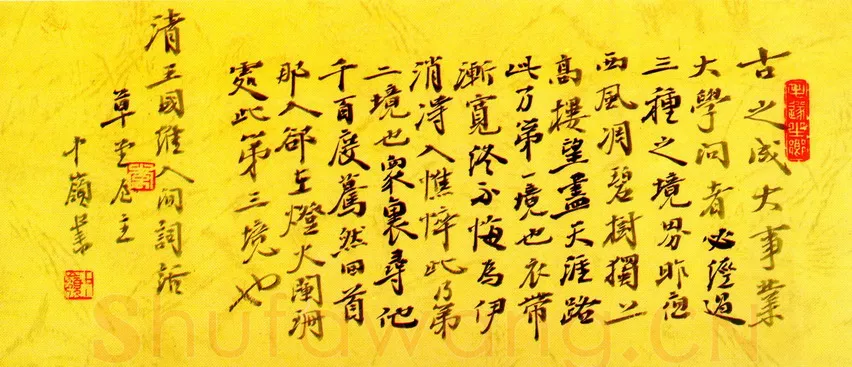 古之成大事業
大學問者必經過
三種之境界昨夜
西風凋碧樹獨上
高樓望盡天涯路
此乃第一境也衣帶
漸寬終不悔為伊
消得人憔悴此乃第
二境也眾裏尋他
千百度驀然回首
那人卻在燈火闌珊
處此第三境也
清王國維人間詞話
草堂主
嶺
Shufawang.CN